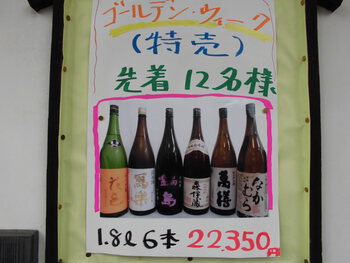 ゴールデン・ウィーク
(特売)
先着 12名様
花邑
寫樂
鍋島
森伊蔵
萬膳
なかむら
1.8ℓ 6本 22,350円